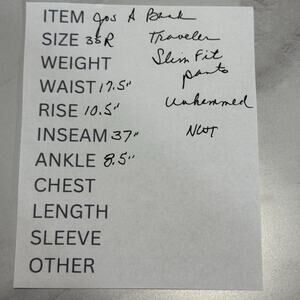 ITEM Jos A Bank
SIZE 35R Traveler
WEIGHT Slim Fit
pants
WAIST 17.5"
RISE 10.5" unhemmed
INSEAM 37" NWT
ANKLE 8.5"
CHEST
LENGTH
SLEEVE
OTHER